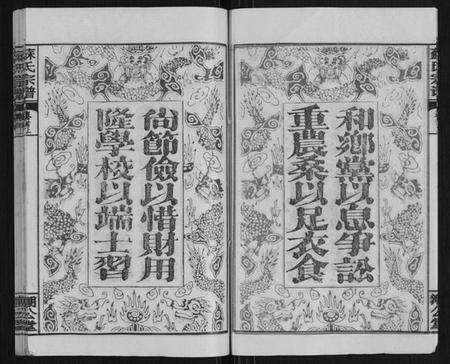 和鄉黨以息爭訟
重農桑以足衣食
尚節儉以惜財用
隆學校以端士習
蘇氏宗譜